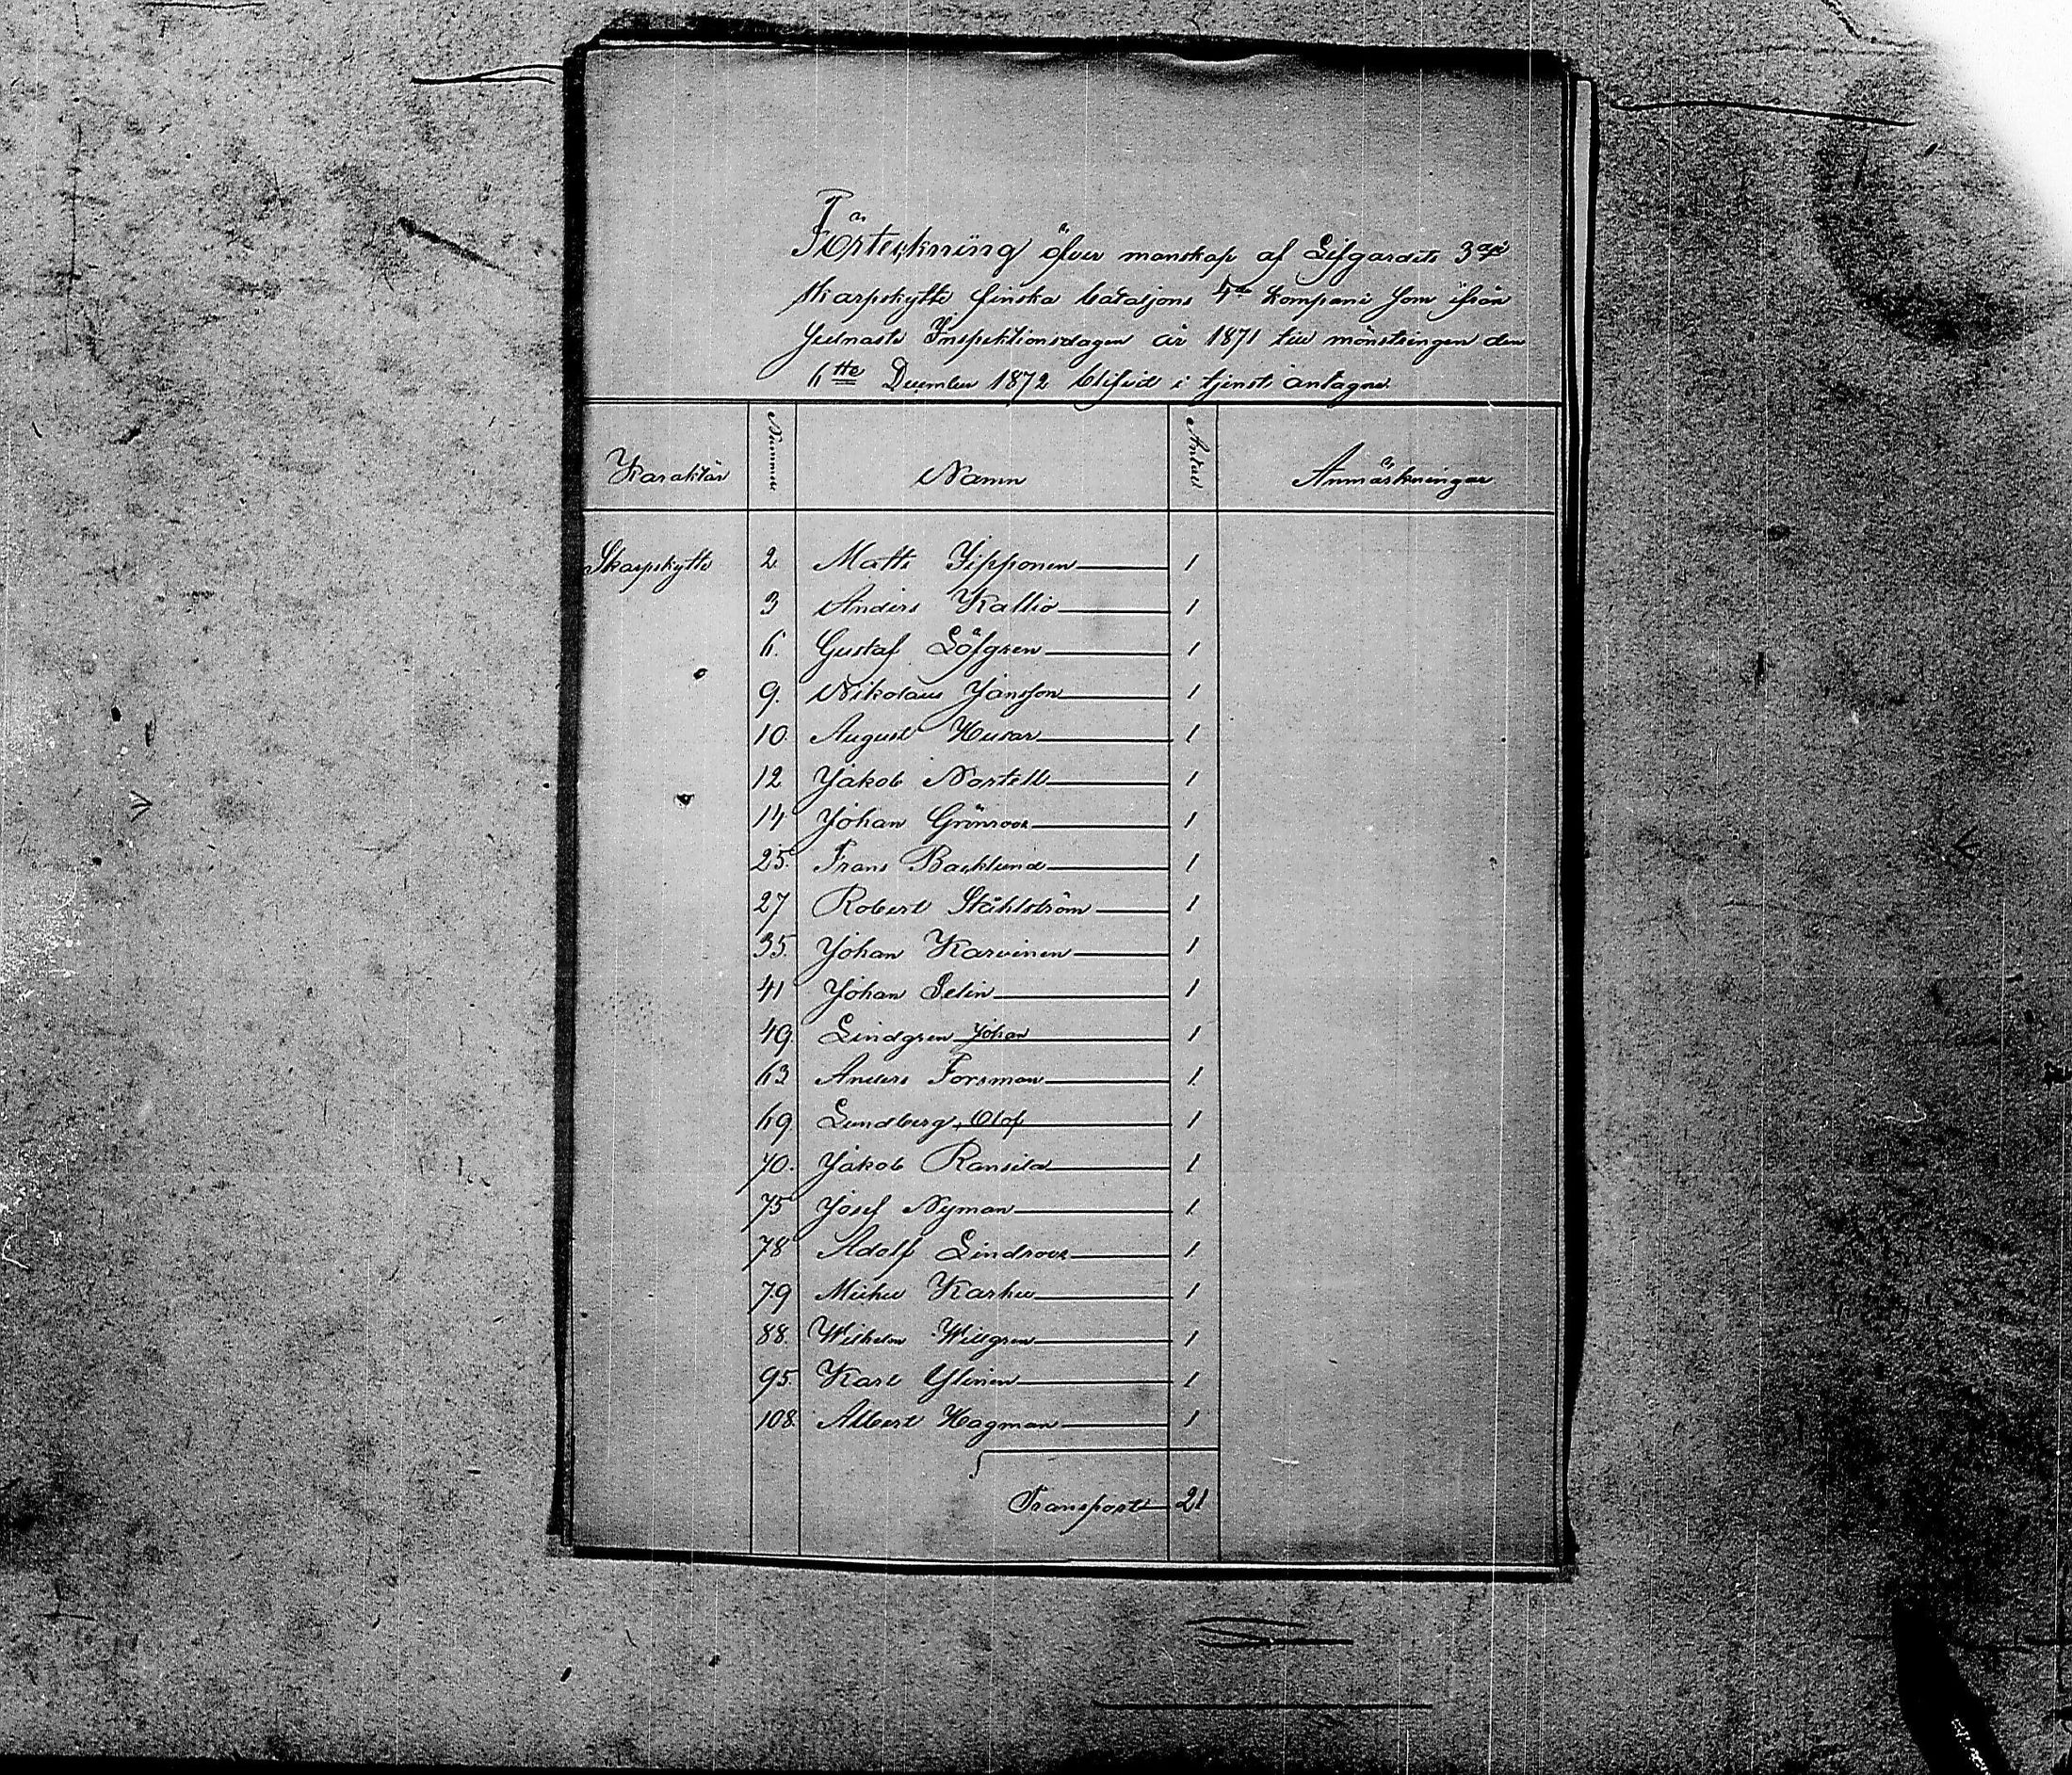 Förteckning öfver manskap af Lifgardets 3dje
skarpskytte finska bataljons 4de kompani som ifrån
sednaste Inspektionsdagen år 1871 till mönstringen den
6tte December 1872 blifvit i tjenst antagne
Karaktär Nummer Namn Antal Anmärkningar
Skarpskytte 2. Matts Sipponen 1
3 Anders Kallio 1
6. Gustaf Löfgren 1
9. Nikolaus Jansson 1
10. August Husar 1
12 Jakob Nortell 1
14 Johan Grönroos 1
25. Frans Backlund 1
27 Robert Ståhlström 1
35. Johan Karvinen 1
41 Johan Selin 1
49. Lindgren Johan 1
63 Anders Forsman 1
69 Lundberg, Olof 1
70. Jakob Ransila 1
75 Josef Nyman 1
78 Adolf Lindroos 1
79 Mickel Karhu 1
88. Wilhelm Willgren 1
95. Karl Ylinen 1
108. Albert Hagman 1
Transport 21